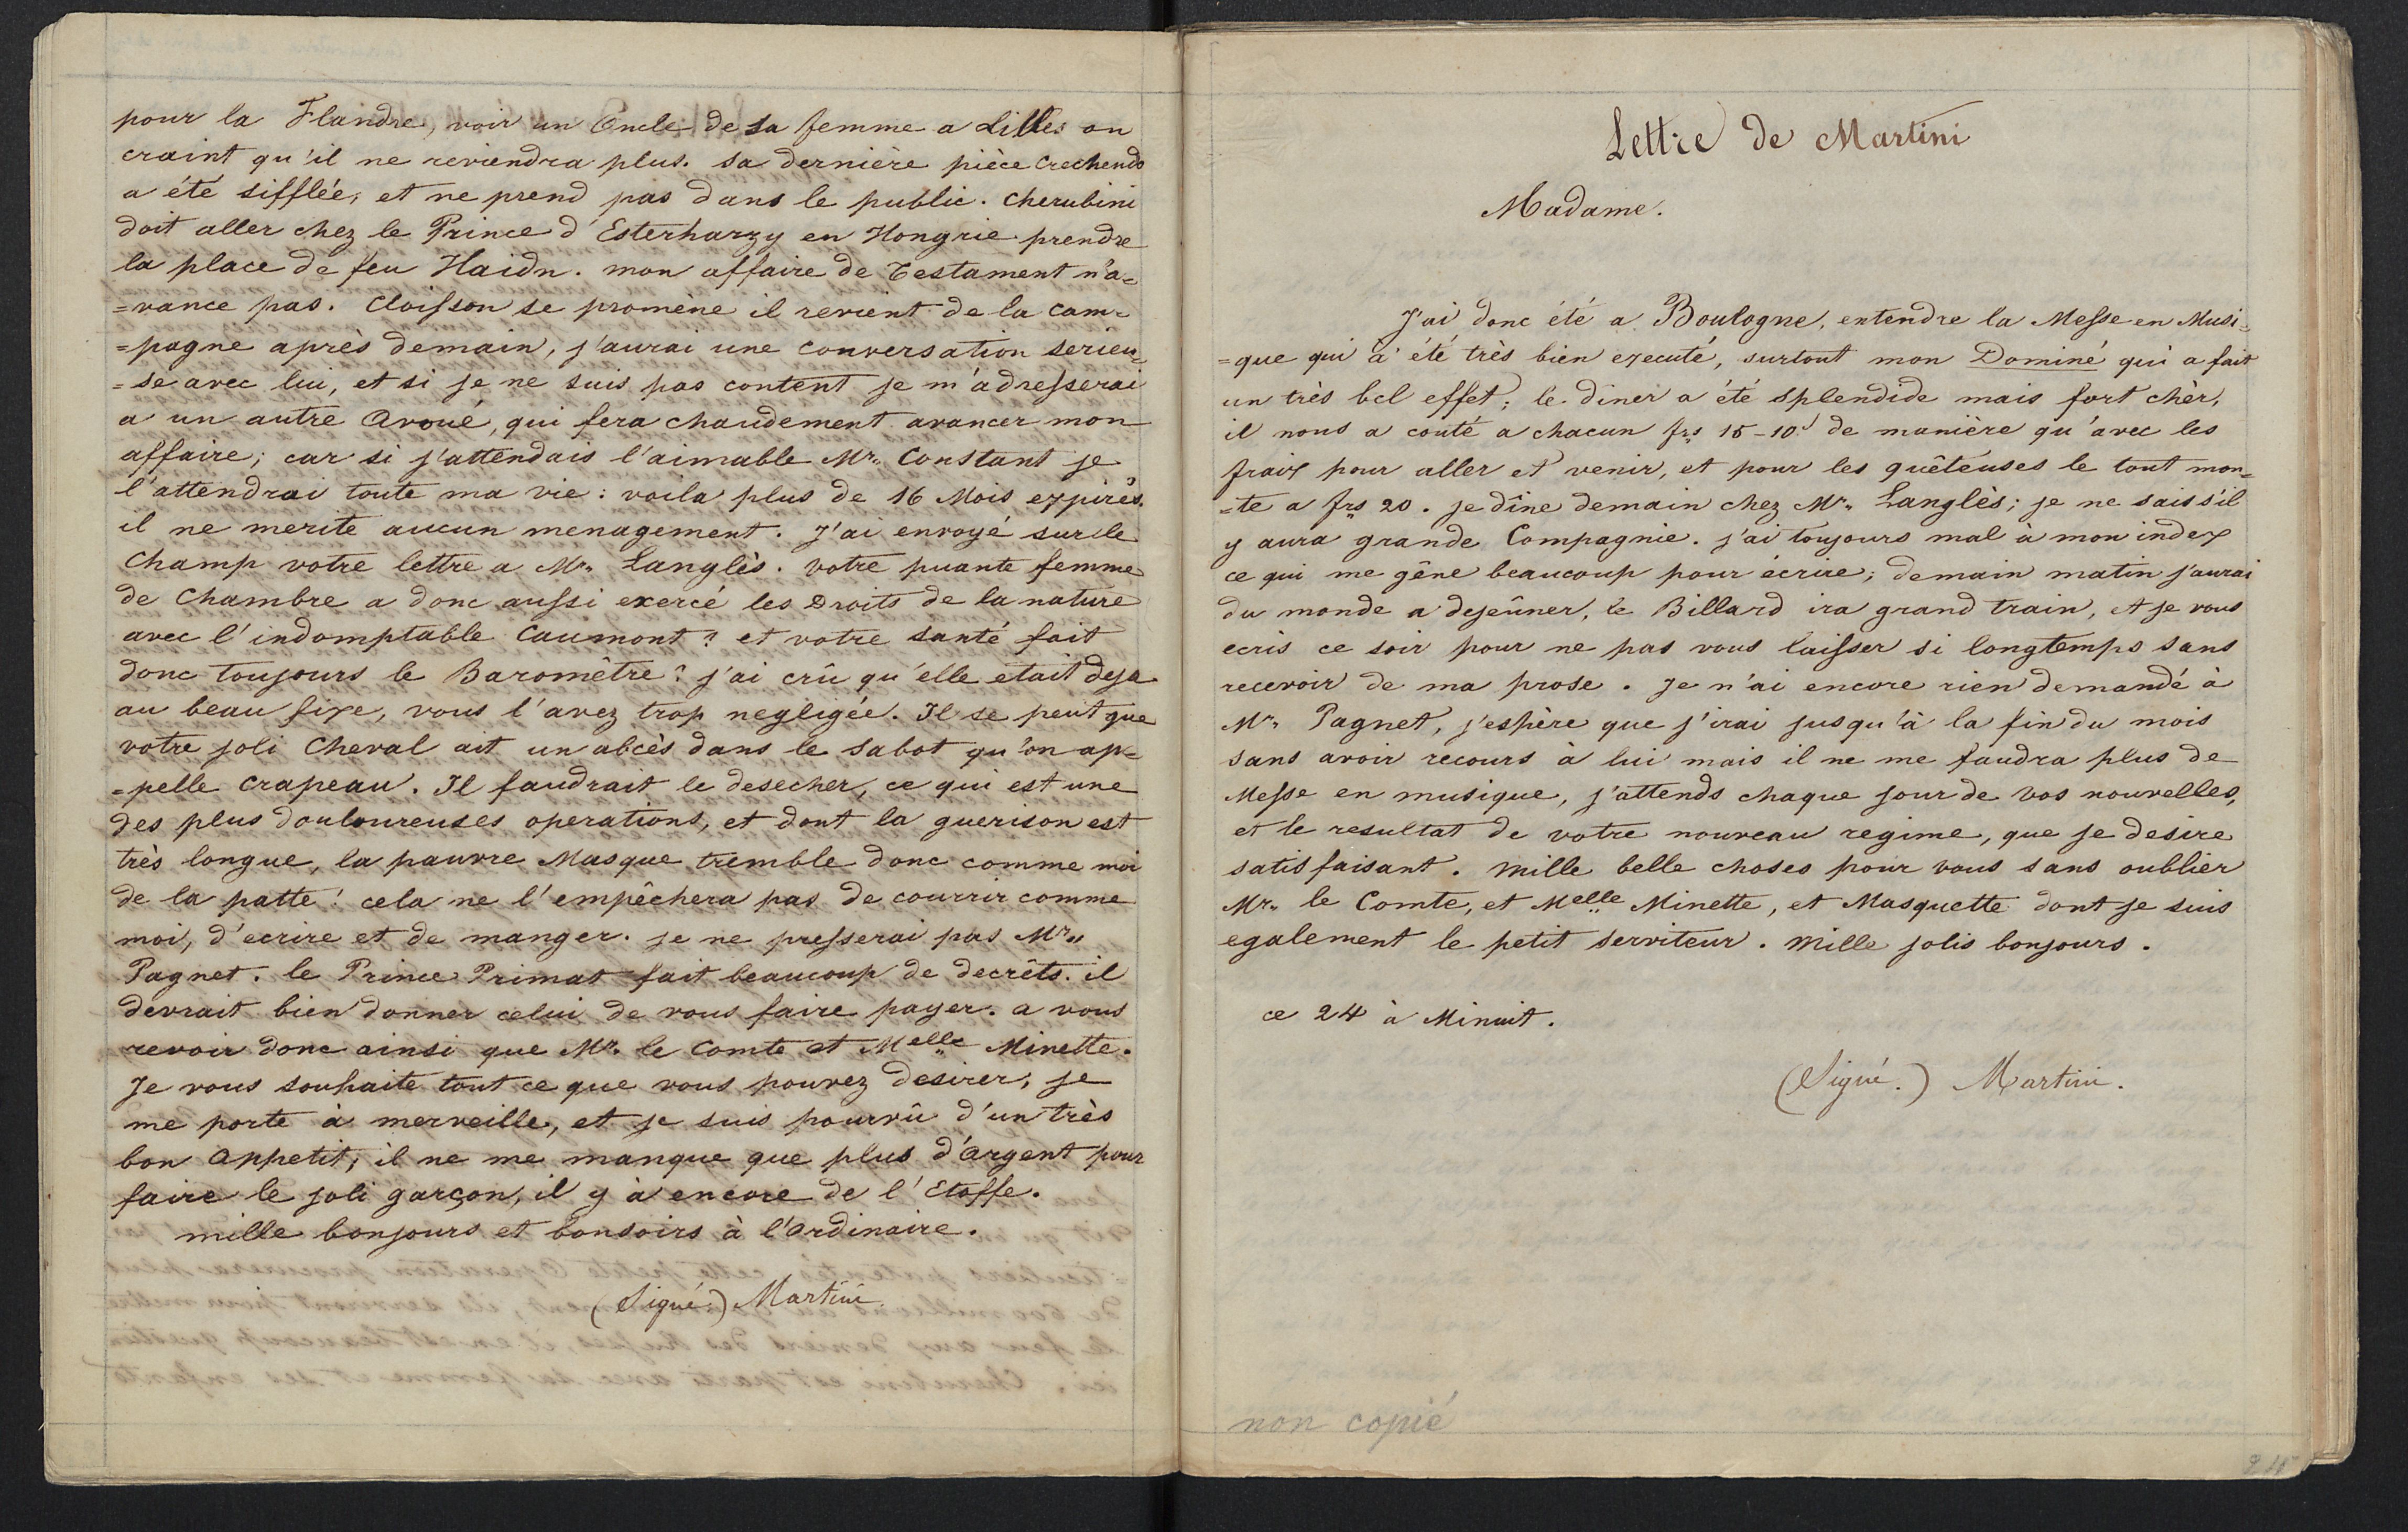 pour la Flandre, voir un Oncle de sa femme a Lilles on
craint qu'il ne reviendra plus. sa dernière pièce Crechendo
a été sifflée, et ne prend pas dans le public. Cherubini
doit aller chez le Prince d'Esterharzy en Hongrie prendre
la place de feu Haidn. mon affaire de Testament n'a=
=vance pas. Cloisson se promène il revient de la cam=
=pagne après demain, j'aurai une conversation serieu=
=se avec lui, et si je ne suis pas content je m'adresserai
a un autre Avoué, qui fera chaudement avancer mon
affaire; car si j'attendais l'aimable Mr. Constant je
l'attendrai toute ma vie: voila plus de 16 Mois expirés.
il ne merite aucun menagement. J'ai envoyé sur le
champ votre lettre a Mr. Langlès. votre puante femme
de Chambre a donc aussi exercé les Droits de la nature
avec l'indomptable Caumont? et votre santé fait
donc toujours le Baromètre? j'ai crû qu'elle etait deja
au beau fixe, vous l'avez trop negligée. Il se peut que
votre joli Cheval ait un abcès dans le sabot qu'on ap=
=pelle crapeau. Il faudrait le desecher, ce qui est une
des plus douloureuses operations, et dont la guerison est
très longue, la pauvre Masque tremble donc comme moi
de la patte! cela ne l'empêchera pas de courrir comme
moi, d'ecrire et de manger. je ne presserai pas Mr.
Pagnet. le Prince Primat fait beaucoup de decrêts. il
devrait bien donner celui de vous faire payer. a vous
revoir donc ainsi que Mr. le Comte et Melle Minette.
Je vous souhaite tout ce que vous pouvez desirer, je
me porte à merveille, et je suis pourvû d'un très
bon Appetit, il ne me manque que plus d'argent pour
faire le joli garçon, il y à encore de l'Etoffe.
mille bonjours et bonsoirs à l'ordinaire.
(Signé.) Martini.
Lettre de Martini
Madame.
J'ai donc été a Boulogne, entendre la Messe en Musi=
=que qui à été très bien executé, surtout mon Dominé qui a fait
un très bel effet; le diner a été splendide mais fort chèr,
il nous a couté a chacun frs 15-10s de manière qu'avec les
fraix pour aller et venir, et pour les quêteuses le tout mon=
=te a frs 20. je dîne demain chez Mr. Langlès; je ne sais s'il
y aura grande Compagnie. j'ai toujours mal à mon index
ce qui me gêne beaucoup pour écrire; demain matin j'aurai
du monde a dejeûner, le Billard ira grand train, et je vous
ecris ce soir pour ne pas vous laisser si longtemps sans
recevoir de ma prose. Je n'ai encore rien demandé à
Mr. Pagnet, j'espère que j'irai jusqu'à la fin du mois
sans avoir recours à lui mais il ne me faudra plus de
Messe en musique, j'attends chaque jour de vos nouvelles,
et le resultat de votre nouveau regime, que je desire
satisfaisant. mille belle choses pour vous sans oublier
Mr. le Comte, et Melle Minette, et Masquette dont je suis
egalement le petit serviteur. mille jolis bonjours.
ce 24 à Minuit.
(Signé.) Martini.
non copié